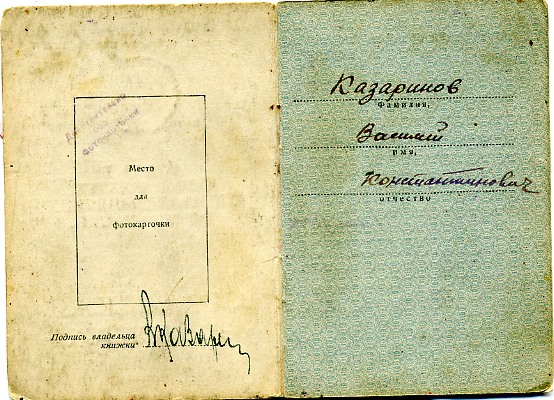 Действительно
без
фотокарточки
Место
для
фотокарточки
Подпись владельца
книжки
Казаринов
Фамилия,
Василий
имя,
Константинович
отчество